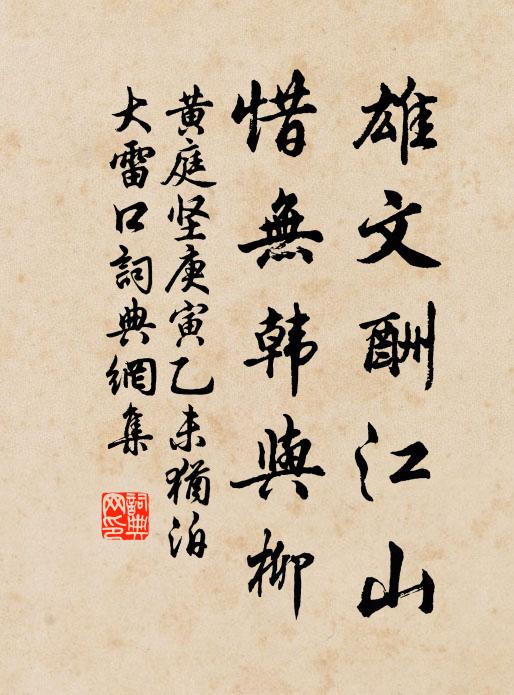 雄文酬江山
惜無韓與柳
黄庭坚庚寅乙未猶泊
大雷口詞典網集
詞典
网印